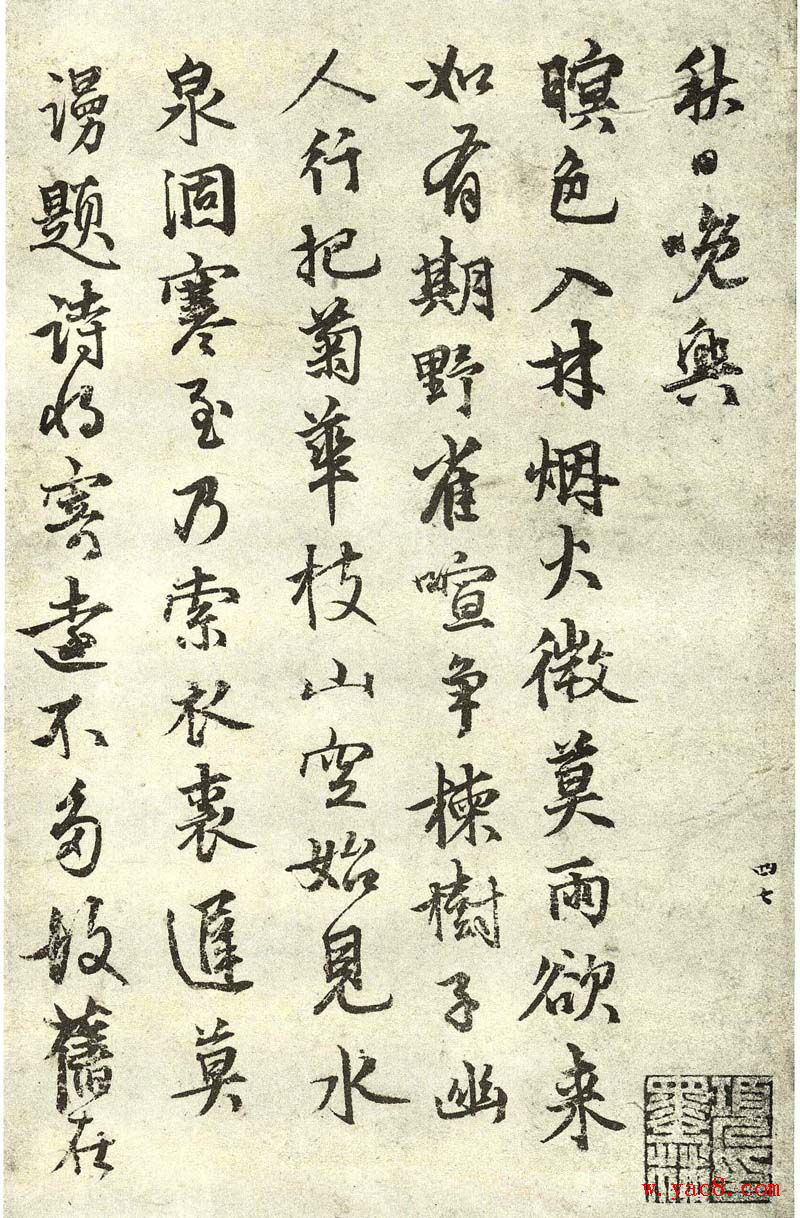 秋日晚興
暝色入林烟火微莫雨欲来
如有期野雀喧争楝樹子幽
人行把菊華枝山空始見水
泉涸寒至乃索衣裘遲莫
謾題詩将寄遠不多故舊在
四七
www.yac8.com